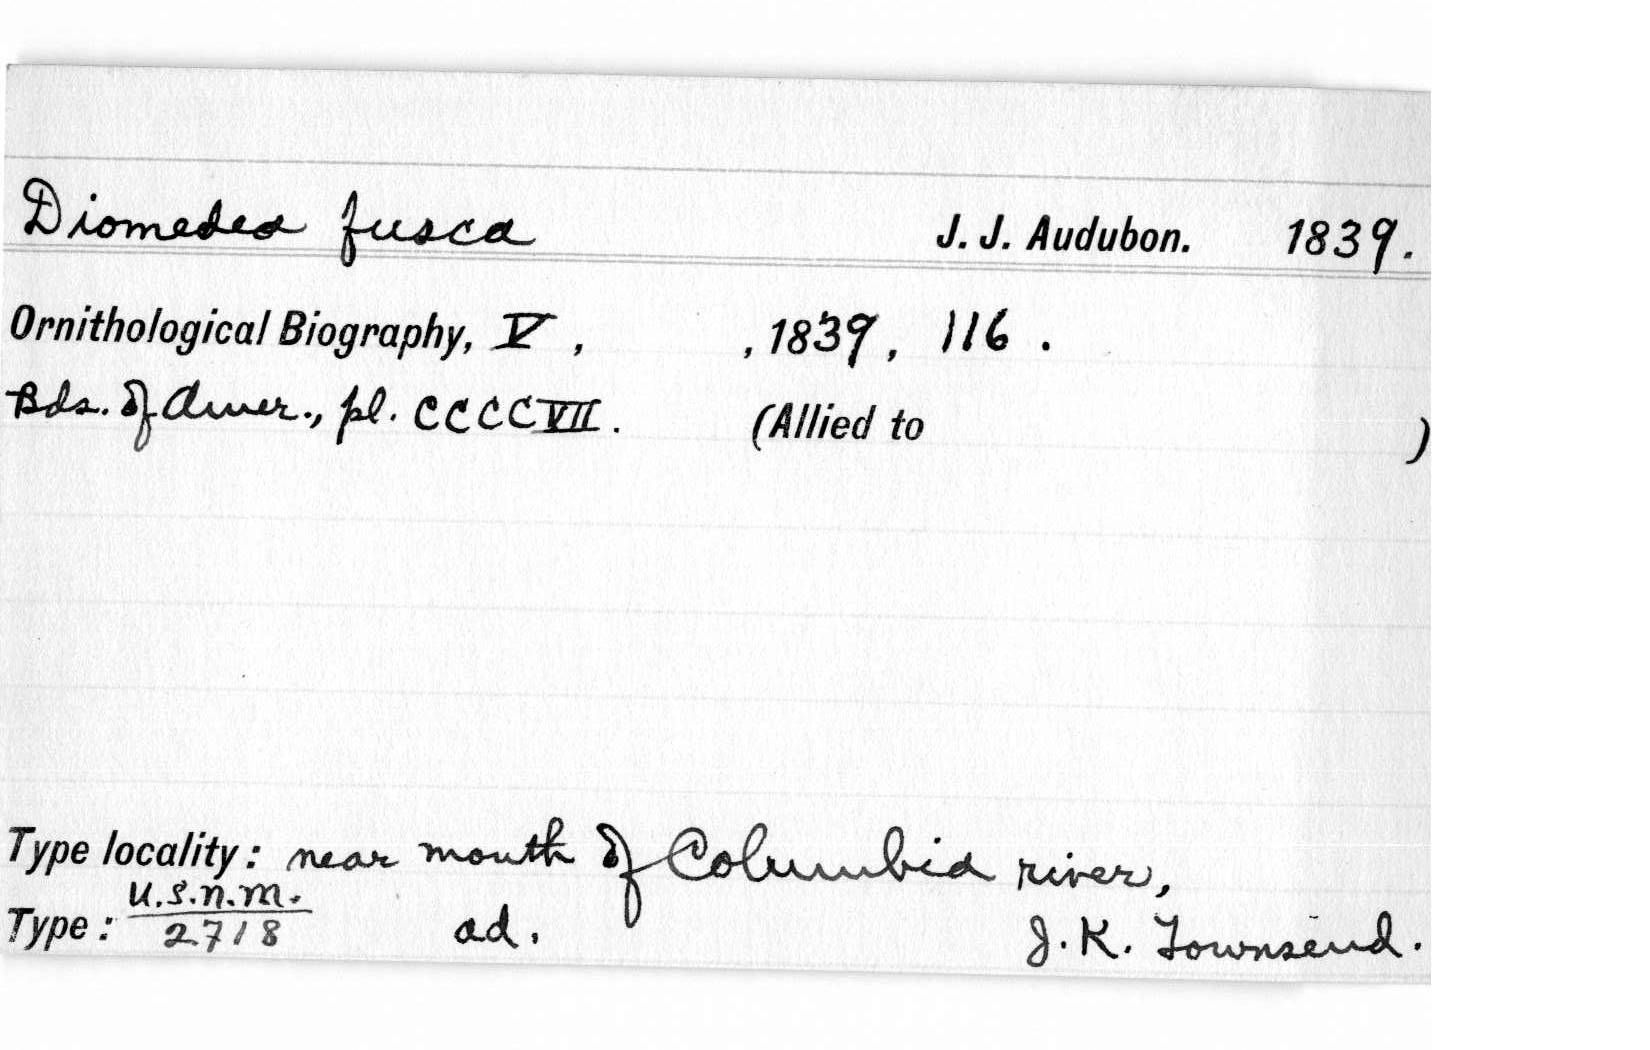 Diomedea fusca J. J. Audubon. 1839.
Ornithological Biography, V, , 1839, 116.
Bds. of Amer., pl. CCCCVII. (Allied to )
Type locality: near mouth of Columbia river,
Type: U.S.N.M. 2718 ad. J. K. Townsend.